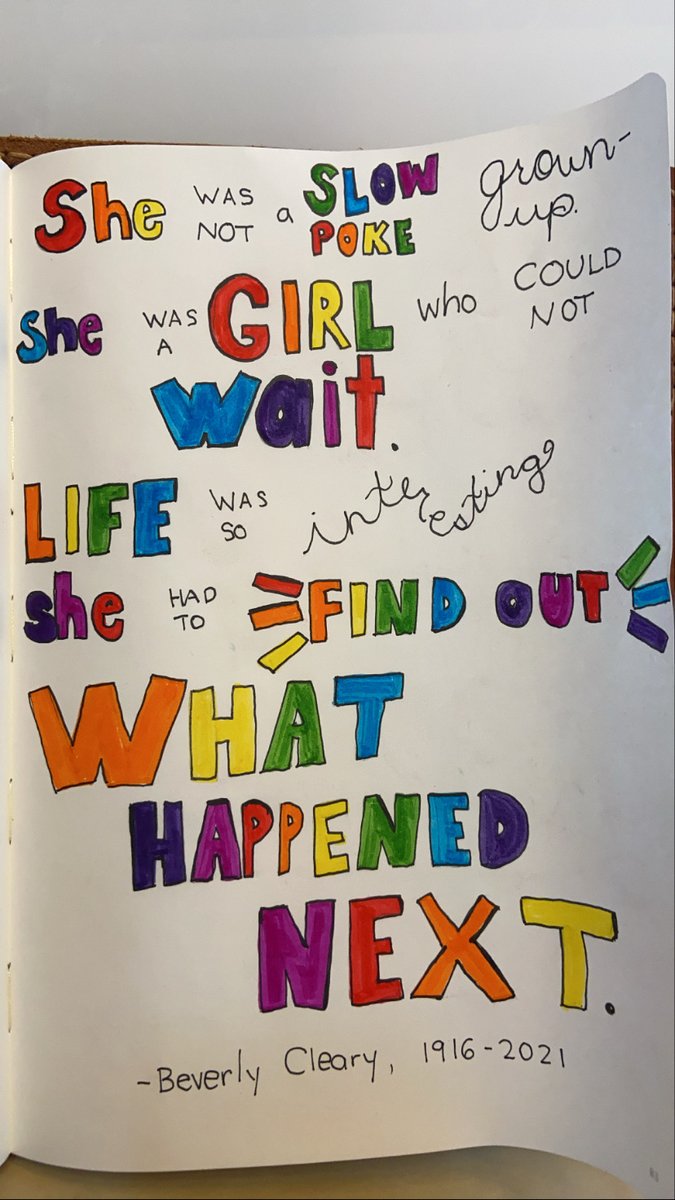 She WAS NOT a SLOW POKE grown-up.
She WAS A GIRL who COULD NOT
wait.
LIFE WAS SO interesting
she HAD TO FIND OUT
WHAT
HAPPENED
NEXT.
-Beverly Cleary, 1916-2021